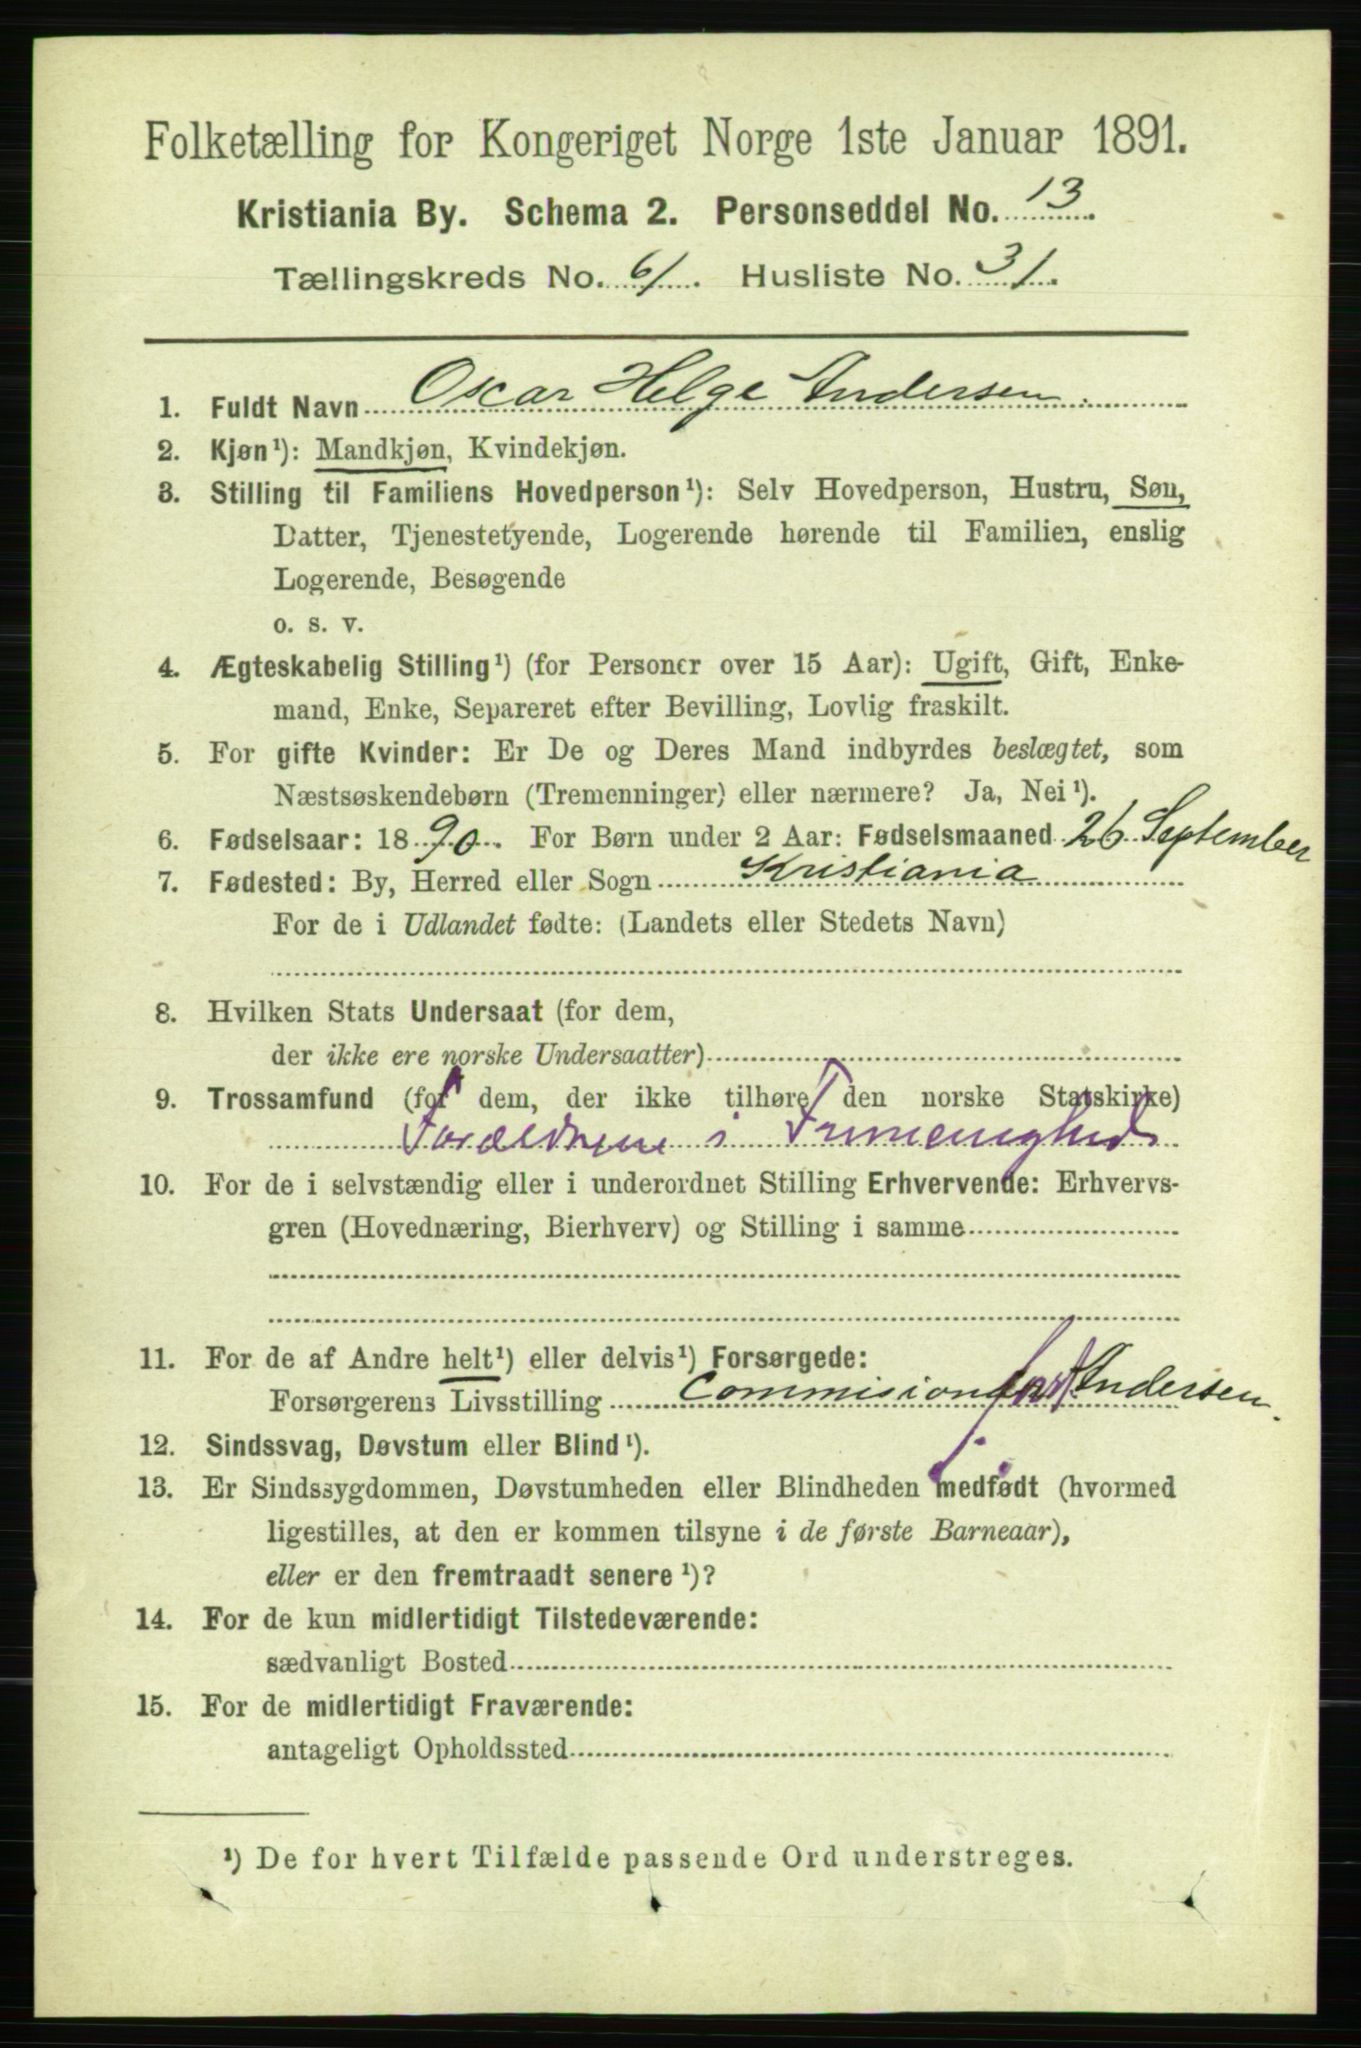 Folketælling for Kongeriget Norge 1ste Januar 1891.
Kristiania By. Schema 2. Personseddel No. 13.
Tællingskreds No. 61. Husliste No. 31.
1. Fuldt Navn Oscar Helge Andersen.
2. Kjøn¹): Mandkjøn, Kvindekjøn.
3. Stilling til Familiens Hovedperson¹): Selv Hovedperson, Hustru, Søn,
Datter, Tjenestetyende, Logerende hørende til Familien, enslig
Logerende, Besøgende
o. s. v.
4. Ægteskabelig Stilling¹) (for Personer over 15 Aar): Ugift, Gift, Enke-
mand, Enke, Separeret efter Bevilling, Lovlig fraskilt.
5. For gifte Kvinder: Er De og Deres Mand indbyrdes beslægtet, som
Næstsøskendebørn (Tremenninger) eller nærmere? Ja, Nei¹).
6. Fødselsaar: 1890. For Børn under 2 Aar: Fødselsmaaned 26 September
7. Fødested: By, Herred eller Sogn Kristiania
For de i Udlandet fødte: (Landets eller Stedets Navn)
8. Hvilken Stats Undersaat (for dem,
der ikke ere norske Undersaatter)
9. Trossamfund (for dem, der ikke tilhøre den norske Statskirke)
Forældrene i Frimenighed
10. For de i selvstændig eller i underordnet Stilling Erhvervende: Erhvervs-
gren (Hovednæring, Bierhverv) og Stilling i samme
11. For de af Andre helt¹) eller delvis¹) Forsørgede:
Forsørgerens Livsstilling Andersen.
12. Sindssvag, Døvstum eller Blind¹).
13. Er Sindssygdommen, Døvstumheden eller Blindheden medfødt (hvormed
ligestilles, at den er kommen tilsyne i de første Barneaar),
eller er den fremtraadt senere¹)?
14. For de kun midlertidigt Tilstedeværende:
sædvanligt Bosted
15. For de midlertidigt Fraværende:
antageligt Opholdssted
¹) De for hvert Tilfælde passende Ord understreges.